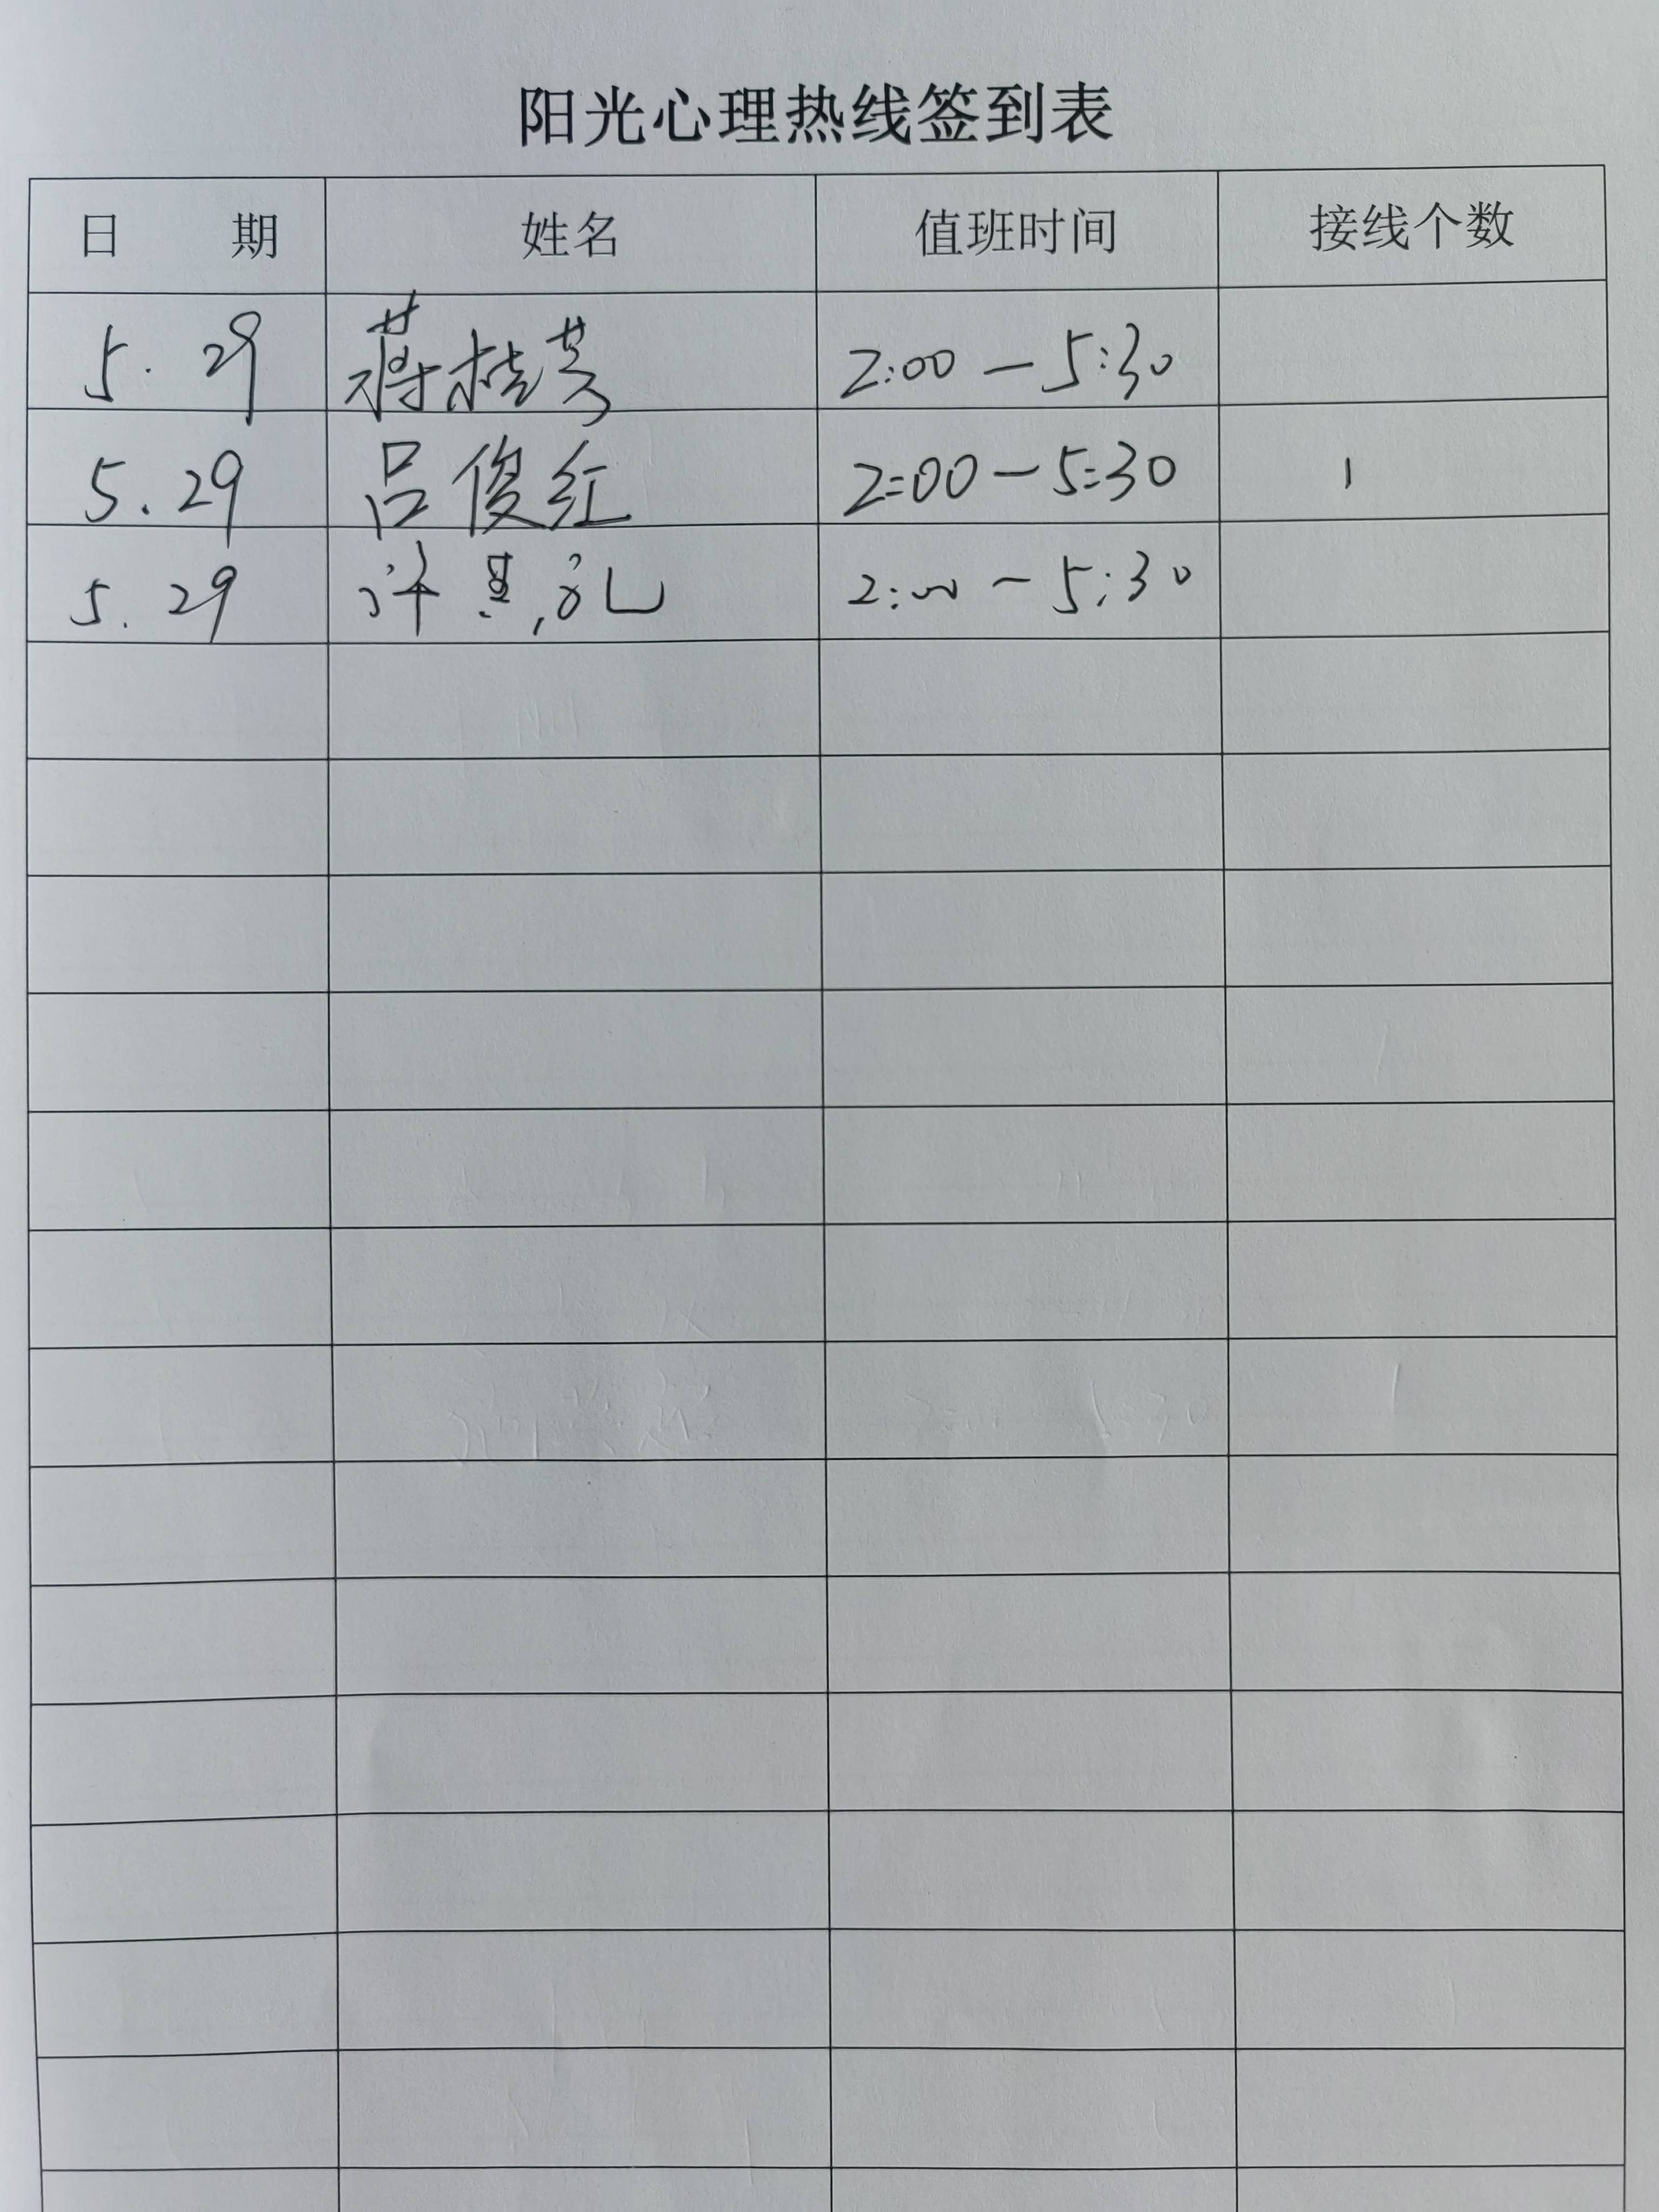 阳光心理热线签到表
日 期 姓名 值班时间 接线个数
5.29 蒋桂芳 2:00-5:30
5.29 吕俊红 2:00-5:30 1
5.29 许 2:00-5:30